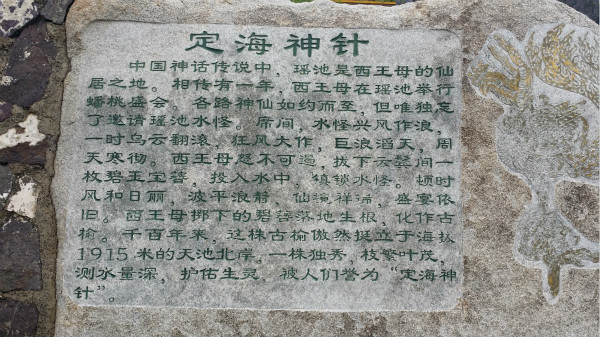 定海神针
中国神话传说中，瑶池是西王母的仙
居之地。相传有一年，西王母在瑶池举行
蟠桃盛会，各路神仙如约而至，但唯独忘
了邀请瑶池水怪。席间，水怪兴风作浪，
一时乌云翻滚，狂风大作，巨浪滔天，周
天寒彻。西王母怒不可遏，拔下云髻间一
枚碧玉宝簪，投入水中，镇锁水怪。顿时
风和日丽，波平浪静，仙境祥瑞，盛宴依
旧。西王母掷下的碧簪落地生根，化作古
榆。千百年来，这株古榆傲然挺立于海拔
1915米的天池北岸。一株独秀，枝繁叶茂，
测水量深，护佑生灵，被人们誉为“定海神
针”。